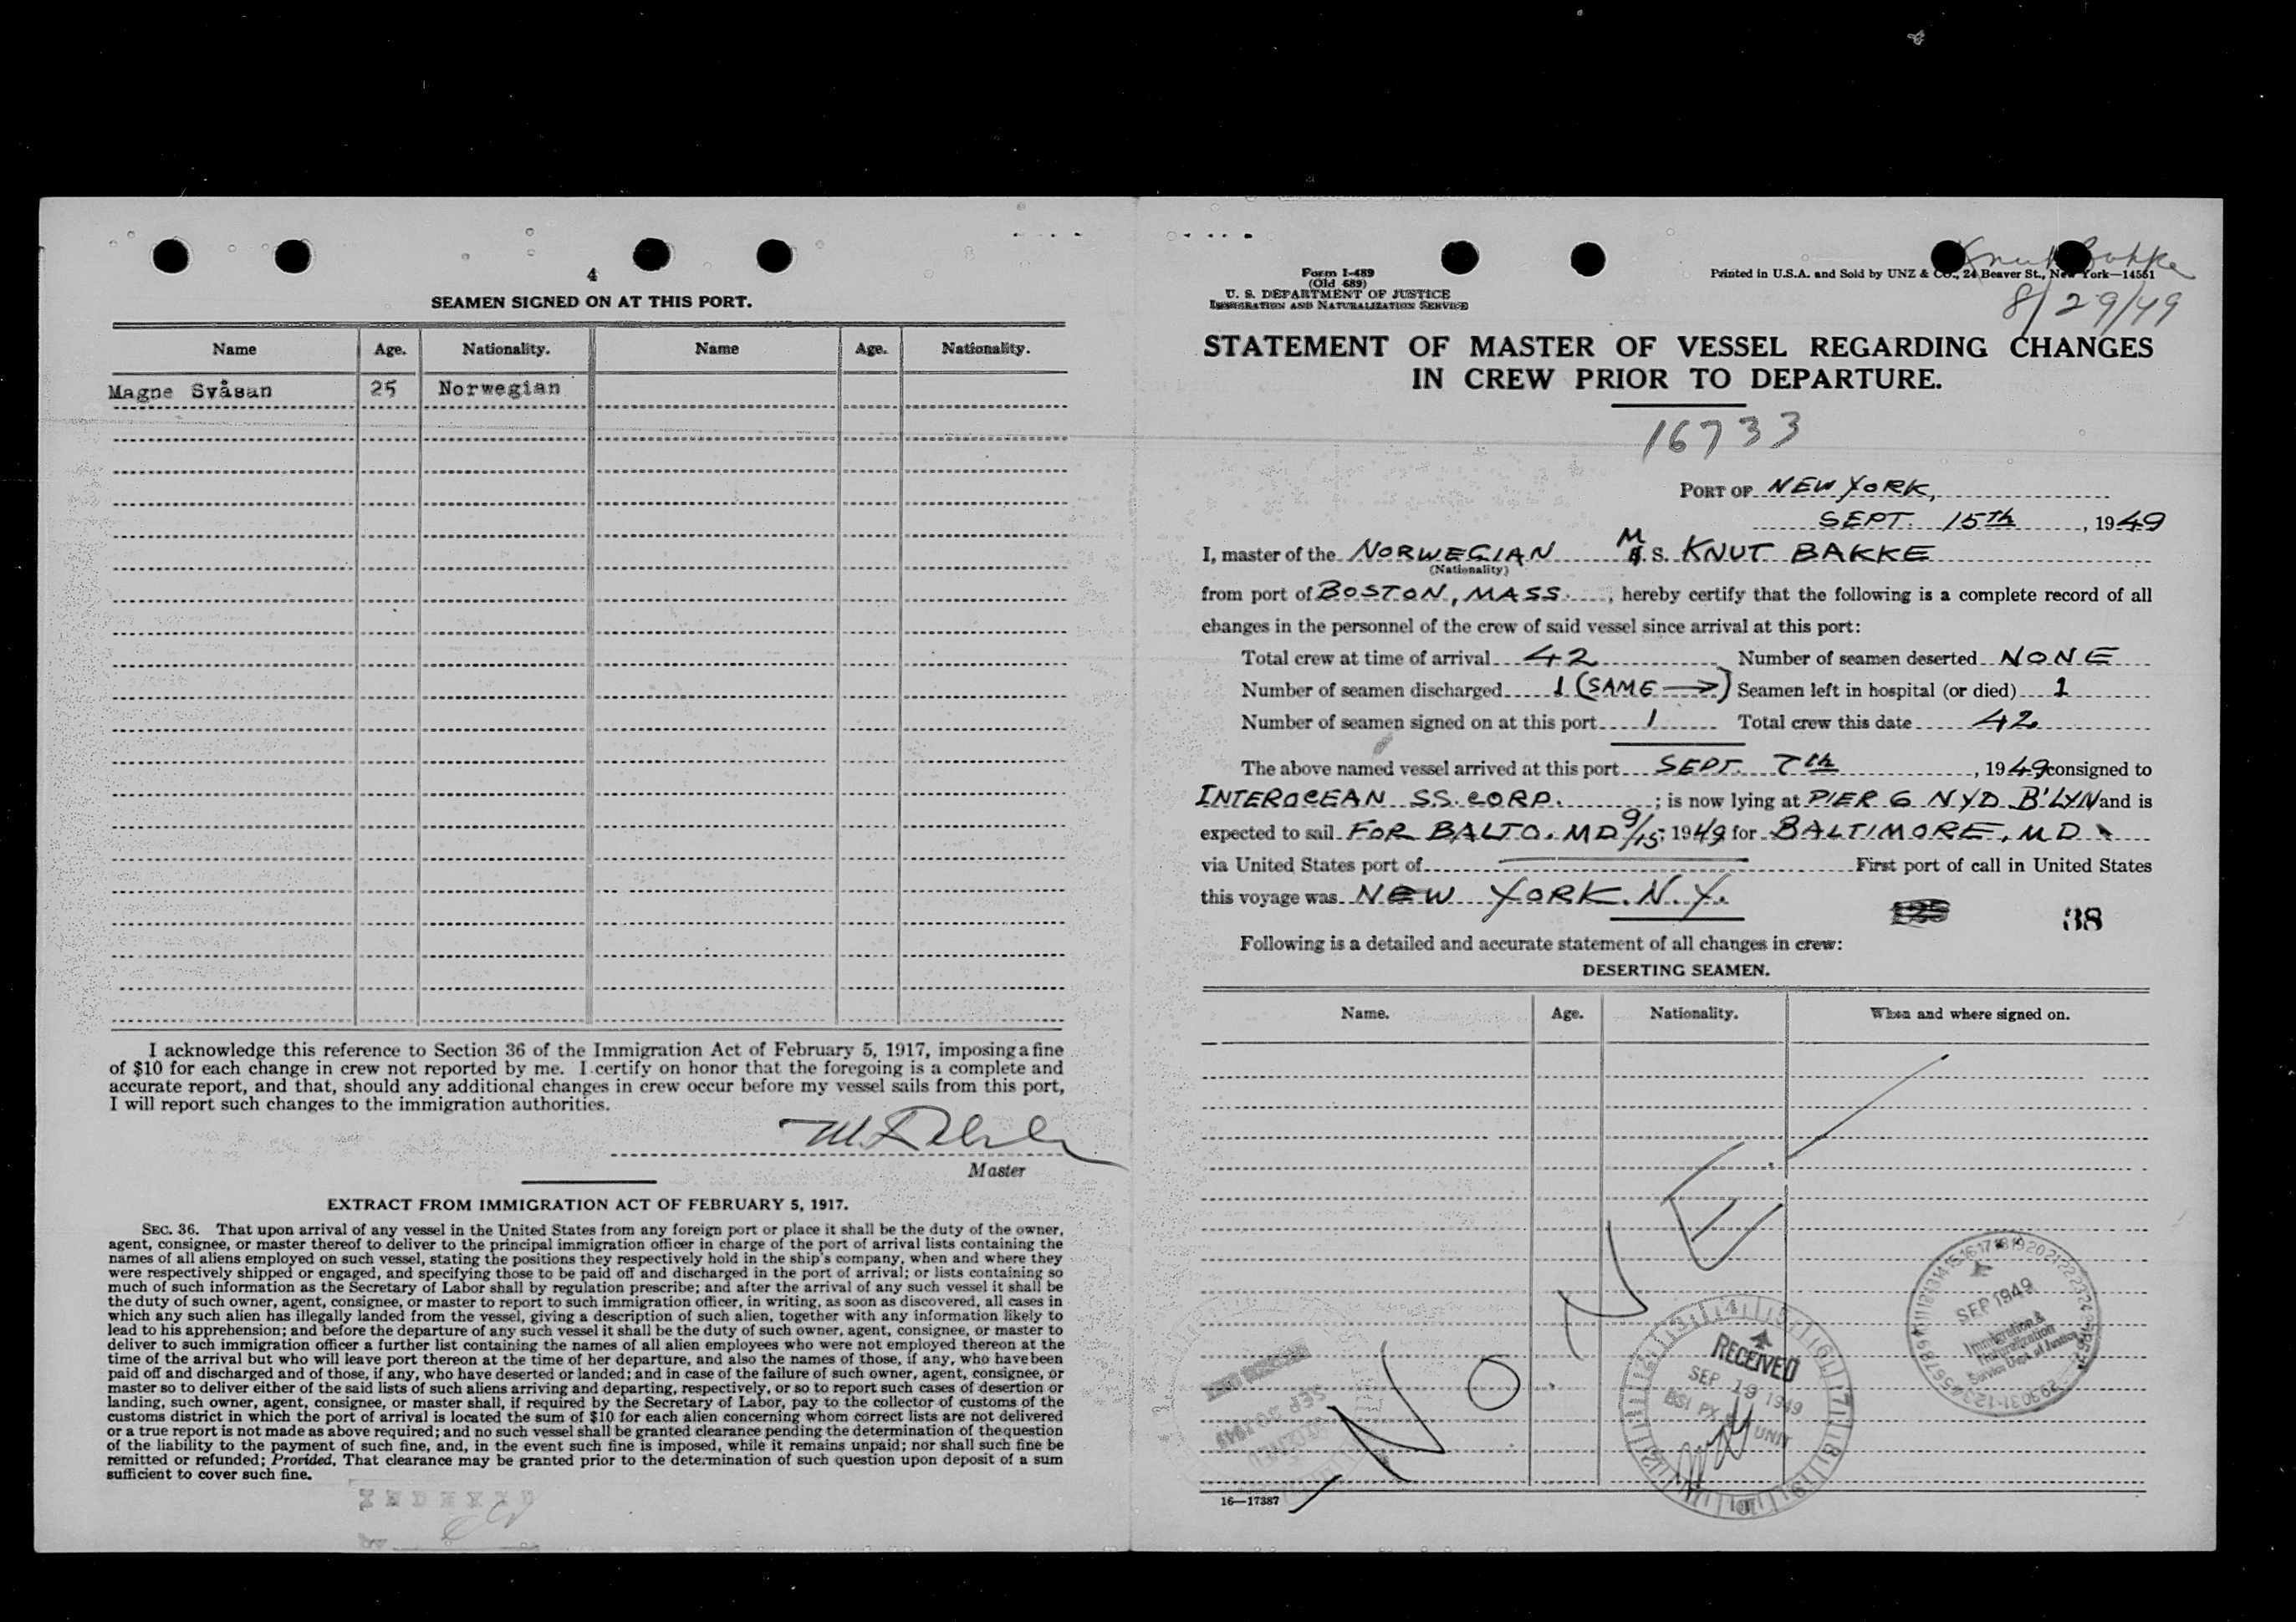 4
SEAMEN SIGNED ON AT THIS PORT.
Name Age. Nationality. Name Age. Nationality.
Magne Svåsan 25 Norwegian
I acknowledge this reference to Section 36 of the Immigration Act of February 5, 1917, imposing a fine
of $10 for each change in crew not reported by me. I certify on honor that the foregoing is a complete and
accurate report, and that, should any additional changes in crew occur before my vessel sails from this port,
I will report such changes to the immigration authorities.
Master
EXTRACT FROM IMMIGRATION ACT OF FEBRUARY 5, 1917.
SEC. 36. That upon arrival of any vessel in the United States from any foreign port or place it shall be the duty of the owner,
agent, consignee, or master thereof to deliver to the principal immigration officer in charge of the port of arrival lists containing the
names of all aliens employed on such vessel, stating the positions they respectively hold in the ship's company, when and where they
were respectively shipped or engaged, and specifying those to be paid off and discharged in the port of arrival; or lists containing so
much of such information as the Secretary of Labor shall by regulation prescribe; and after the arrival of any such vessel it shall be
the duty of such owner, agent, consignee, or master to report to such immigration officer, in writing, as soon as discovered, all cases in
which any such alien has illegally landed from the vessel, giving a description of such alien, together with any information likely to
lead to his apprehension; and before the departure of any such vessel it shall be the duty of such owner, agent, consignee, or master to
deliver to such immigration officer a further list containing the names of all alien employees who were not employed thereon at the
time of the arrival but who will leave port thereon at the time of her departure, and also the names of those, if any, who have been
paid off and discharged and of those, if any, who have deserted or landed; and in case of the failure of such owner, agent, consignee, or
master so to deliver either of the said lists of such aliens arriving and departing, respectively, or so to report such cases of desertion or
landing, such owner, agent, consignee, or master shall, if required by the Secretary of Labor, pay to the collector of customs of the
customs district in which the port of arrival is located the sum of $10 for each alien concerning whom correct lists are not delivered
or a true report is not made as above required; and no such vessel shall be granted clearance pending the determination of the question
of the liability to the payment of such fine, and, in the event such fine is imposed, while it remains unpaid; nor shall such fine be
remitted or refunded; Provided, That clearance may be granted prior to the determination of such question upon deposit of a sum
sufficient to cover such fine.
INDEXED
Knut Bakke
8/29/49
Form I-489
(Old 689)
U. S. DEPARTMENT OF JUSTICE
IMMIGRATION AND NATURALIZATION SERVICE
Printed in U.S.A. and Sold by UNZ & CO., 24 Beaver St., New York—14551
STATEMENT OF MASTER OF VESSEL REGARDING CHANGES
IN CREW PRIOR TO DEPARTURE.
16733
PORT OF NEW YORK,
SEPT. 15th, 1949
I, master of the NORWEGIAN M. S. KNUT BAKKE
(Nationality)
from port of BOSTON, MASS., hereby certify that the following is a complete record of all
changes in the personnel of the crew of said vessel since arrival at this port:
Total crew at time of arrival 42 Number of seamen deserted NONE
Number of seamen discharged 1 (SAME →) Seamen left in hospital (or died) 1
Number of seamen signed on at this port 1 Total crew this date 42
The above named vessel arrived at this port SEPT. 7th, 1949 consigned to
INTEROCEAN SS. CORP.; is now lying at PIER 6 NYD B'LYN and is
expected to sail FOR BALTO. MD 9/15, 1949 for BALTIMORE, MD
via United States port of First port of call in United States
this voyage was NEW YORK. N.Y.
125 38
Following is a detailed and accurate statement of all changes in crew:
DESERTING SEAMEN.
Name. Age. Nationality. When and where signed on.
NONE
RECEIVED
SEP 19 1949
BSI PX UNIT
SEP 1949
Immigration &
Naturalization
Service Dept. of Justice
SEP 20 1949
16—17387